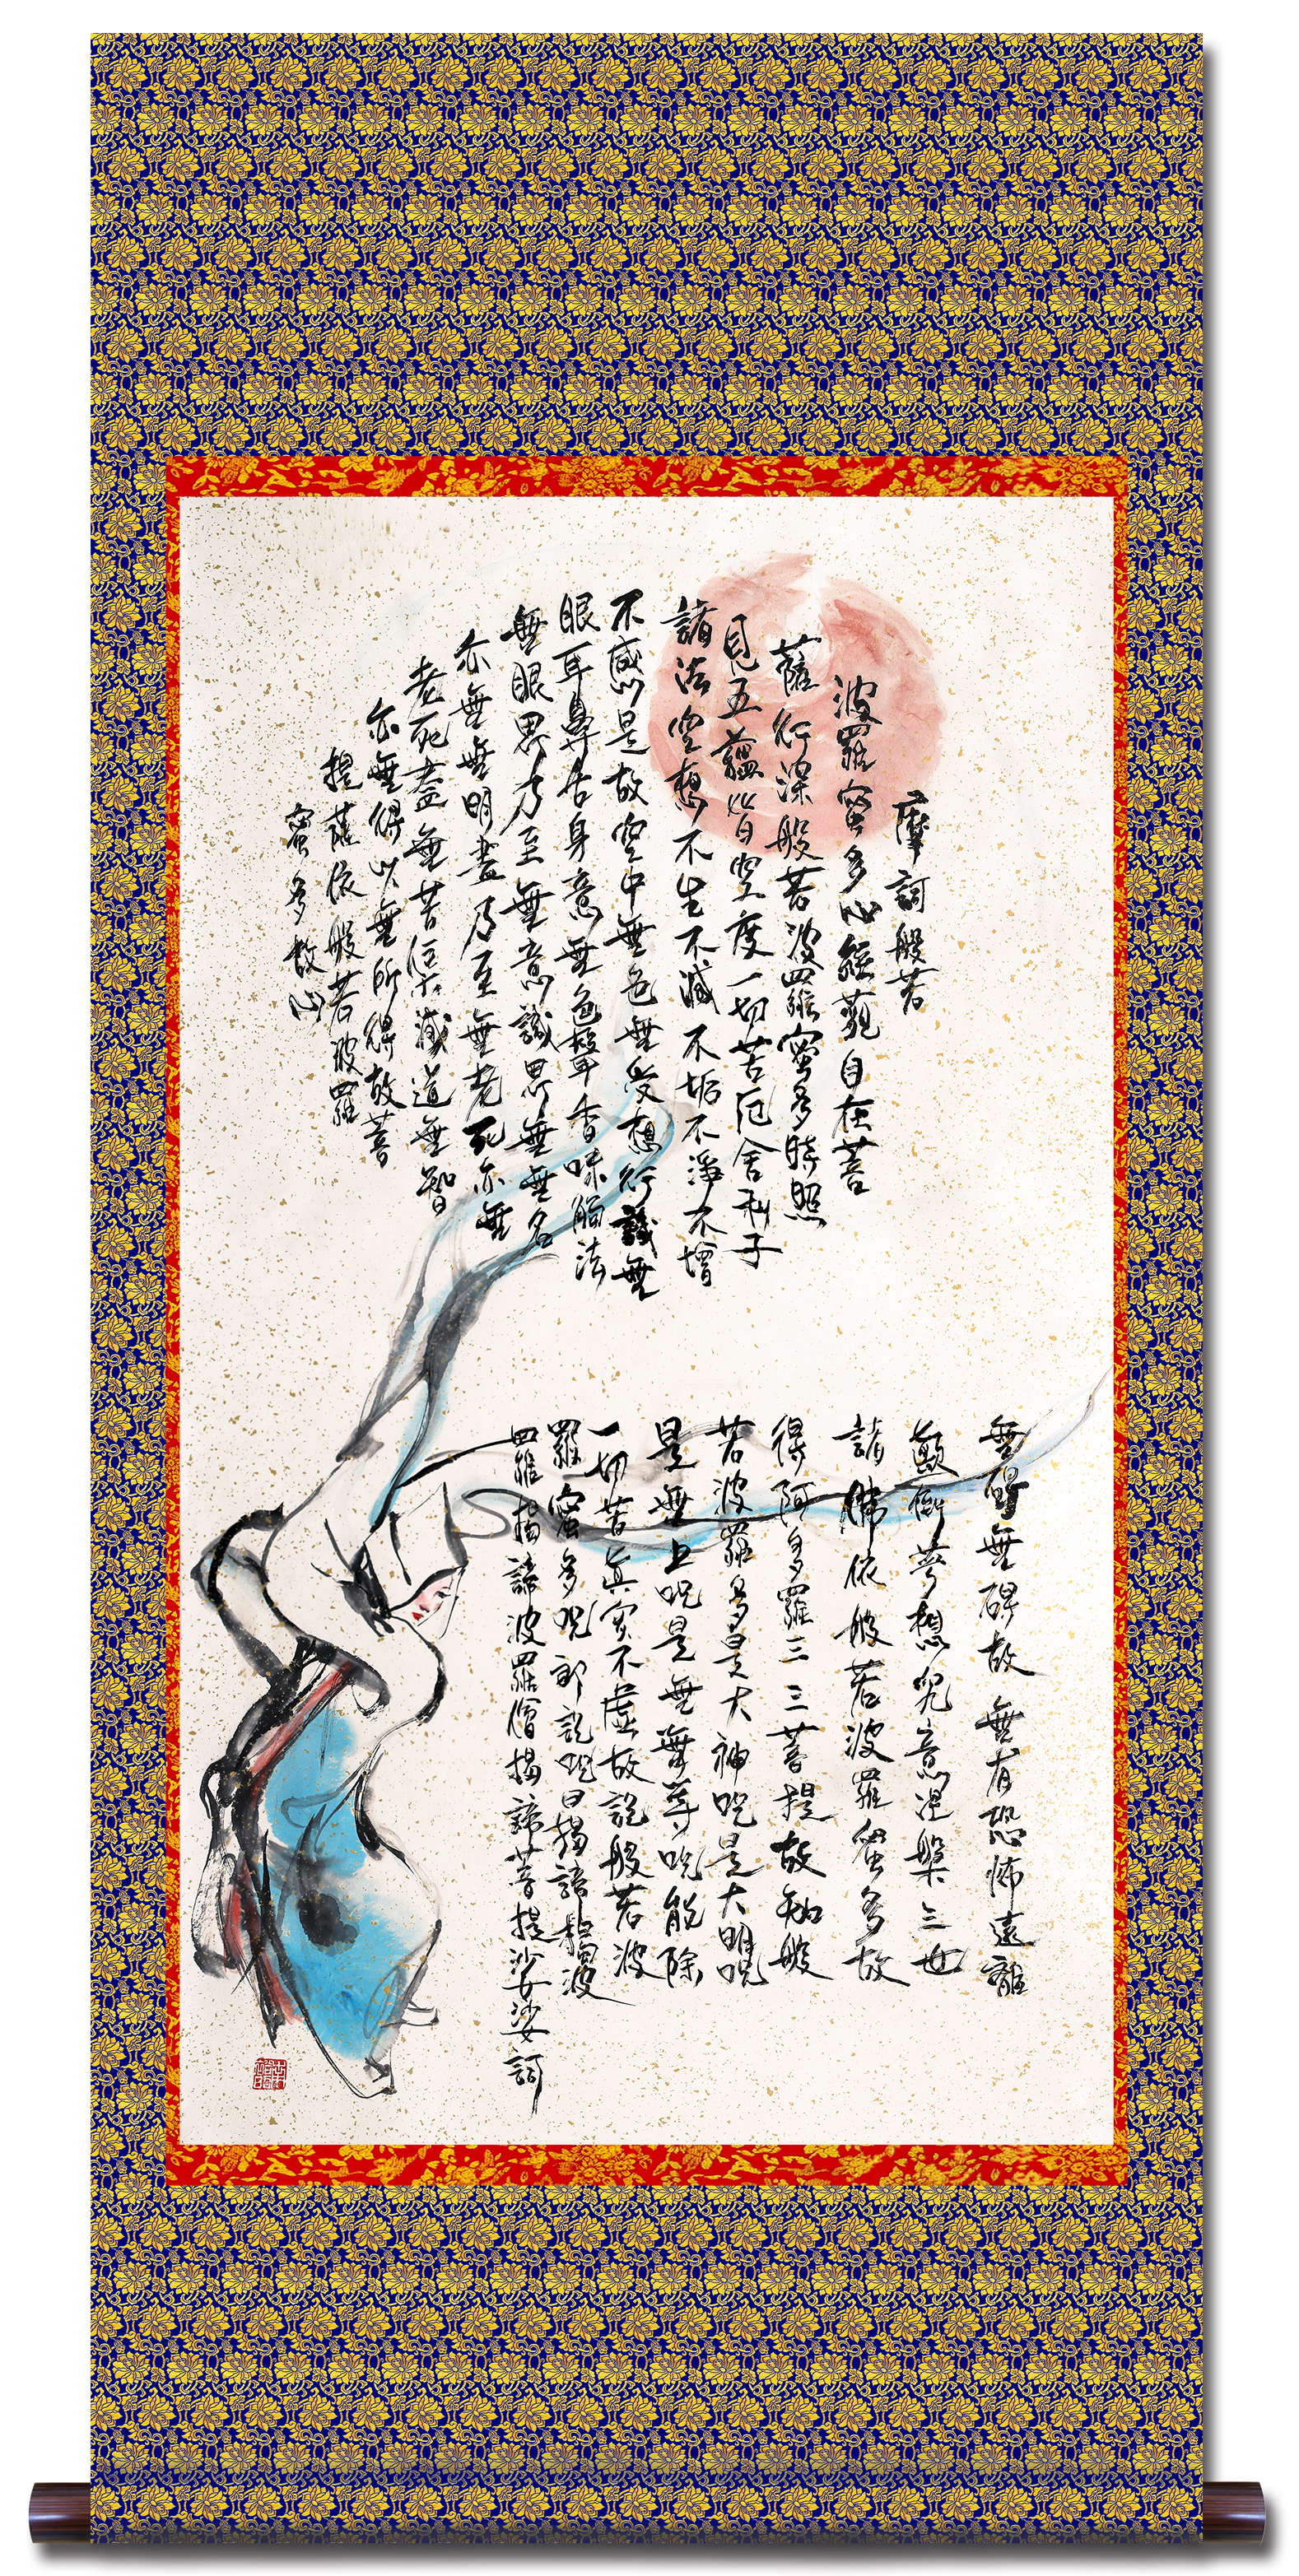 摩訶般若
波羅蜜多心經觀自在菩
薩行深般若波羅蜜多時照
見五蘊皆空度一切苦厄舍利子
諸法空想不生不滅不垢不淨不增
不感是故空中無色無受想行識無
眼耳鼻舌身意無色聲香味觸法
無眼界乃至無意識界無無名
亦無無明盡乃至無老死亦無
老死盡無苦集滅道無智
亦無得以無所得故菩
提薩依般若波羅
蜜多故心
無礙無礙故無有恐怖遠離
顛倒夢想究竟涅槃三世
諸佛依般若波羅蜜多故
得阿多羅三三菩提故知般
若波羅多是大神咒是大明咒
是無上咒是無等咒能除
一切苦真实不虛故說般若波
羅蜜多咒即說咒曰揭諦揭波
羅揭諦波羅僧揭諦菩提娑娑訶